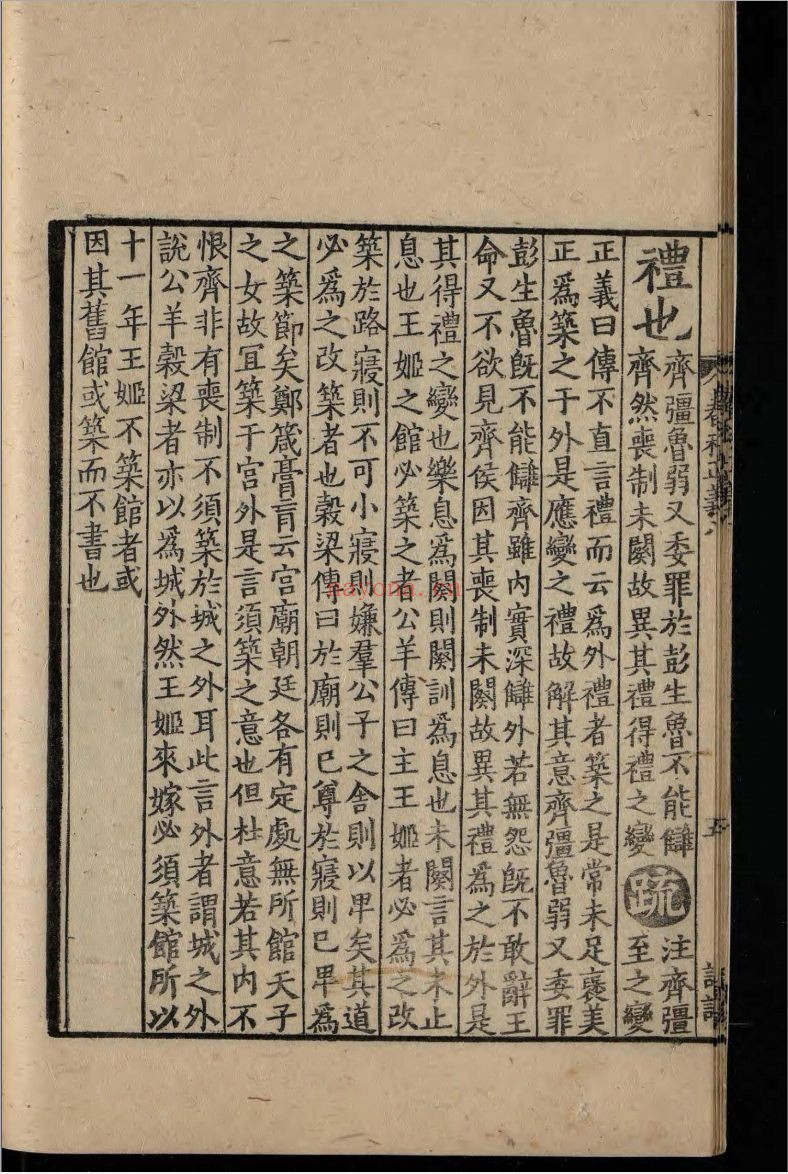 禮也
齊彊魯弱又委罪於彭生魯不能讎
齊然喪制未闋故異其禮得禮之變
疏
注齊彊
至之變
正義曰傳不直言禮而云爲外禮者築之是常未足襃美
正爲築之于外是應變之禮故解其意齊彊魯弱又委罪
彭生魯旣不能讎齊雖内實深讎外若無怨旣不敢辭王
命又不欲見齊侯因其喪制未闋故異其禮爲之於外是
其得禮之變也樂息爲闋則闋訓爲息也未闋言其未止
息也王姬之館必築之者公羊傳曰主王姬者必爲之改
築於路寢則不可小寢則嫌羣公子之舍則以卑矣其道
必爲之改築者也穀梁傳曰於廟則已尊於寢則已卑爲
之築節矣鄭箴膏肓云宫廟朝廷各有定處無所館天子
之女故冝築于宫外是言須築之意也但杜意若其内不
恨齊非有喪制不須築於城之外耳此言外者謂城之外
說公羊穀梁者亦以爲城外然王姬來嫁必須築館所以
十一年王姬不築館者或
因其舊館或築而不書也
春秋正義八
五